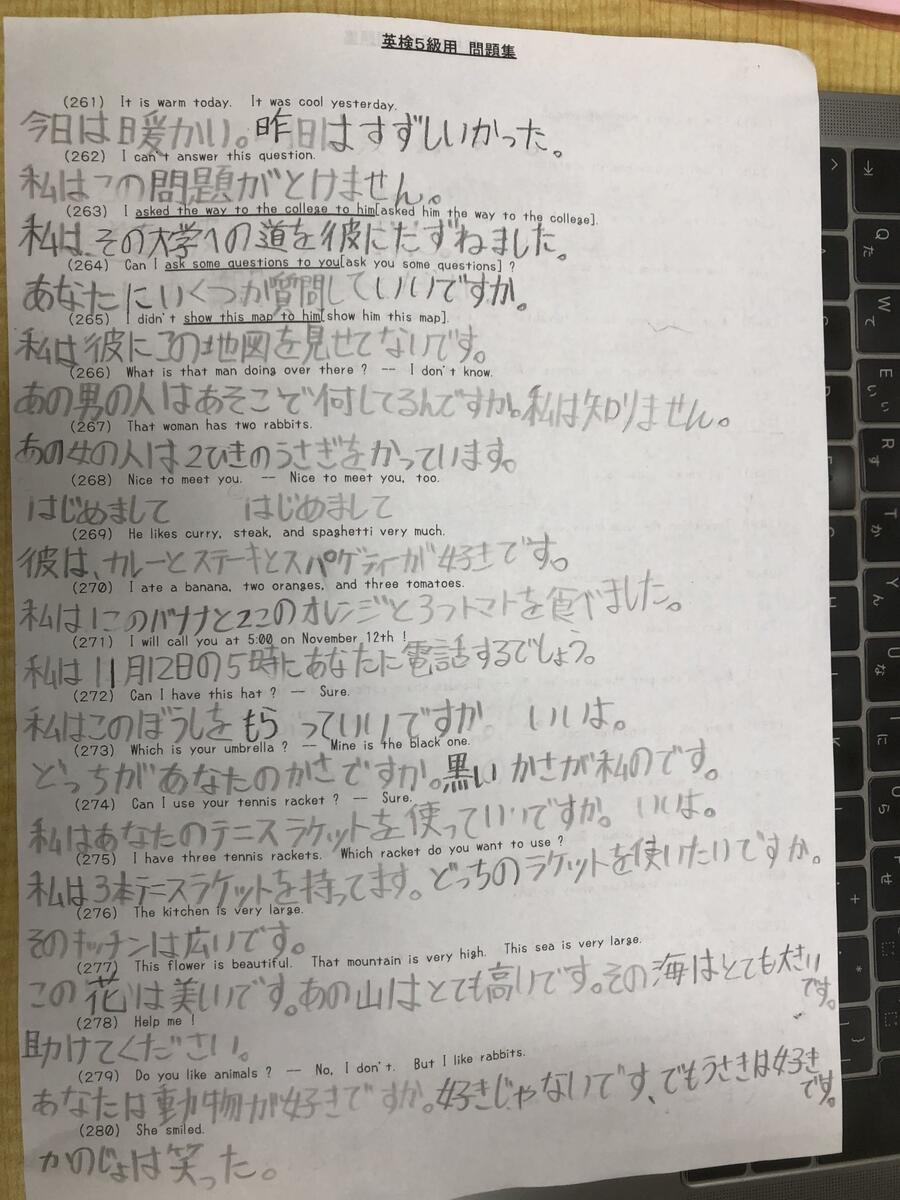 英検5級用 問題集
(261) It is warm today. It was cool yesterday.
今日は暖かい。昨日はすずしいかった。
(262) I can't answer this question.
私はこの問題がとけません。
(263) I asked the way to the college to him[asked him the way to the college].
私は、その大学への道を彼にたずねました。
(264) Can I ask some questions to you[ask you some questions] ?
あなたにいくつか質問していいですか。
(265) I didn't show this map to him[show him this map].
私は彼にこの地図を見せてないです。
(266) What is that man doing over there ? -- I don't know.
あの男の人はあそこで何してるんですか。私は知りません。
(267) That woman has two rabbits.
あの女の人は2ひきのうさぎをかっています。
(268) Nice to meet you. -- Nice to meet you, too.
はじめまして はじめまして
(269) He likes curry, steak, and spaghetti very much.
彼は、カルーとステーキとスパゲティーが好きです。
(270) I ate a banana, two oranges, and three tomatoes.
私は1このバナナと2このオレンジと3つトマトを食べました。
(271) I will call you at 5:00 on November 12th !
私は11月12日の5時にあなたに電話するでしょう。
(272) Can I have this hat ? -- Sure.
私はこのぼうしをもらっていいですか いいは。
(273) Which is your umbrella ? -- Mine is the black one.
どっちがあなたのかさですか。黒いかさが私のです。
(274) Can I use your tennis racket ? -- Sure.
私はあなたのテニスラケットを使っていいですか。いいは。
(275) I have three tennis rackets. Which racket do you want to use ?
私は3本テニスラケットを持ってます。どっちのラケットを使いたいですか。
(276) The kitchen is very large.
そのキッチンは広いです。
(277) This flower is beautiful. That mountain is very high. This sea is very large.
この花は美いです。あの山はとても高いです。その海はとても大きい
です。
(278) Help me !
助けてください。
(279) Do you like animals ? -- No, I don't. But I like rabbits.
あなたは動物が好きですか。好きじゃないです、でもうさきは好き
です。
(280) She smiled.
かのじょは笑った。
Q
た
W
て
E
い
R
す
T
か
Y
ん
U
な
I
に
O
ら
P
せ